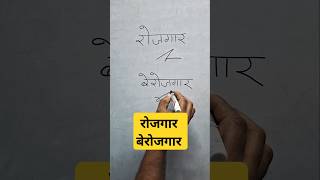 रोजगार
बेरोजगार
रोजगार
बेरोजगार